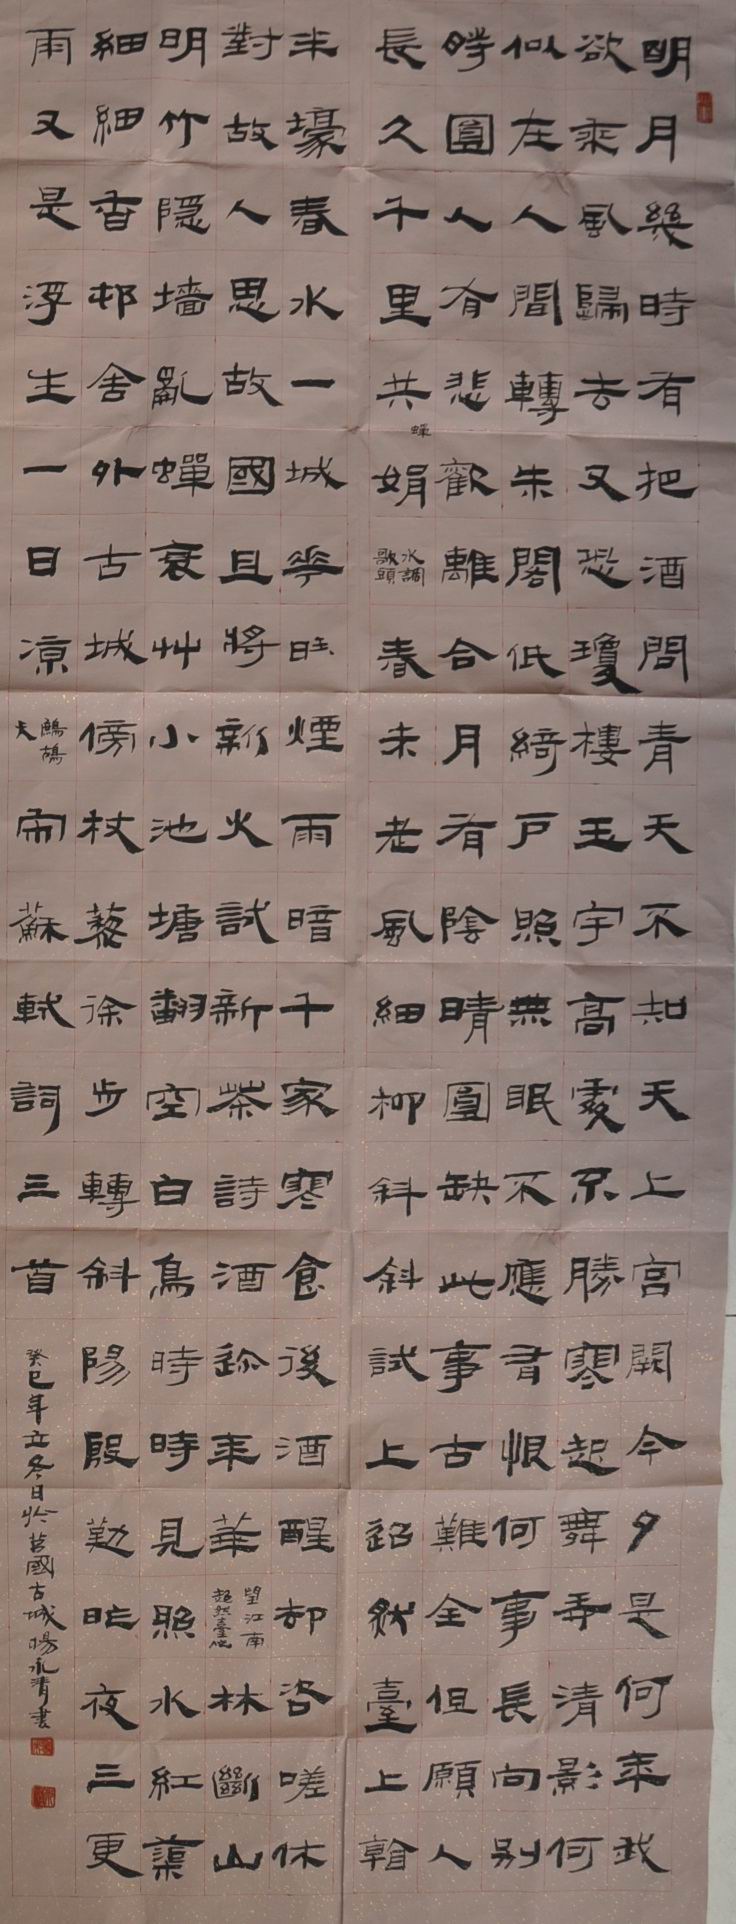 明月幾時有把酒問青天不知天上宮闕今夕是何年我
欲乘風歸去又恐瓊樓玉宇高處不勝寒起舞弄清影何
似在人間轉朱閣低綺戶照無眠不應有恨何事長向别
時圓人有悲歡離合月有陰晴圓缺此事古難全但願人
長久千里共娟水調歌頭春未老風細柳斜斜試上超然臺上看
蟬
半壕春水一城花旺煙雨暗千家寒食後酒醒却咨嗟休
對故人思故國且將新火試新茶詩酒趁年華望江南超然臺作林斷山
明竹隱墻亂蟬衰艸小池塘翻空白鳥時時見照水紅蕖
細細香邨舍外古城傍杖藜徐步轉斜陽殷勤昨夜三更
雨又是浮生一日凉鷓鴣天 蘇軾詞三首
癸巳年立冬日於莒國古城楊永清書